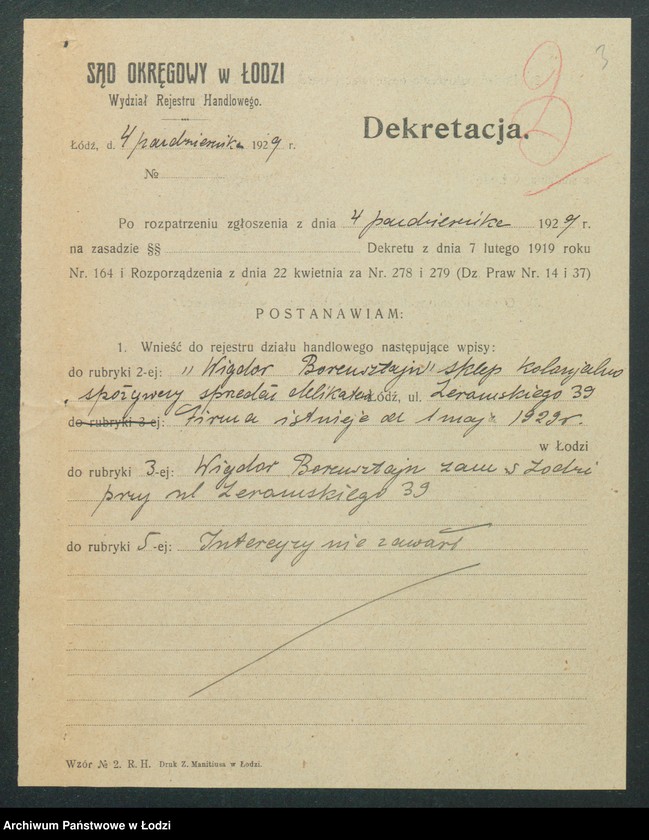 3
SĄD OKRĘGOWY w ŁODZI
Wydział Rejestru Handlowego.
Dekretacja.
Łódź, d. 4 października 1929 r.
№
Po rozpatrzeniu zgłoszenia z dnia 4 października 1929 r.
na zasadzie §§ Dekretu z dnia 7 lutego 1919 roku
Nr. 164 i Rozporządzenia z dnia 22 kwietnia za Nr. 278 i 279 (Dz. Praw Nr. 14 i 37)
POSTANAWIAM:
1. Wnieść do rejestru działu handlowego następujące wpisy:
do rubryki 2-ej: "Wigdor Borensztajn" sklep kolonjalno
spożywczy sprzedaż delikates Łódź, ul. Żeromskiego 39
do rubryki 3-ej: Firma istnieje od 1 maja 1929 r.
w Łodzi
do rubryki 3-ej: Wigdor Borensztajn zam w Łodzi
przy ul Żeromskiego 39
do rubryki 5-ej: Intercyzy nie zawarł
Wzór № 2. R. H. Druk Z. Manitiusa w Łodzi.
Archiwum Państwowe w Łodzi